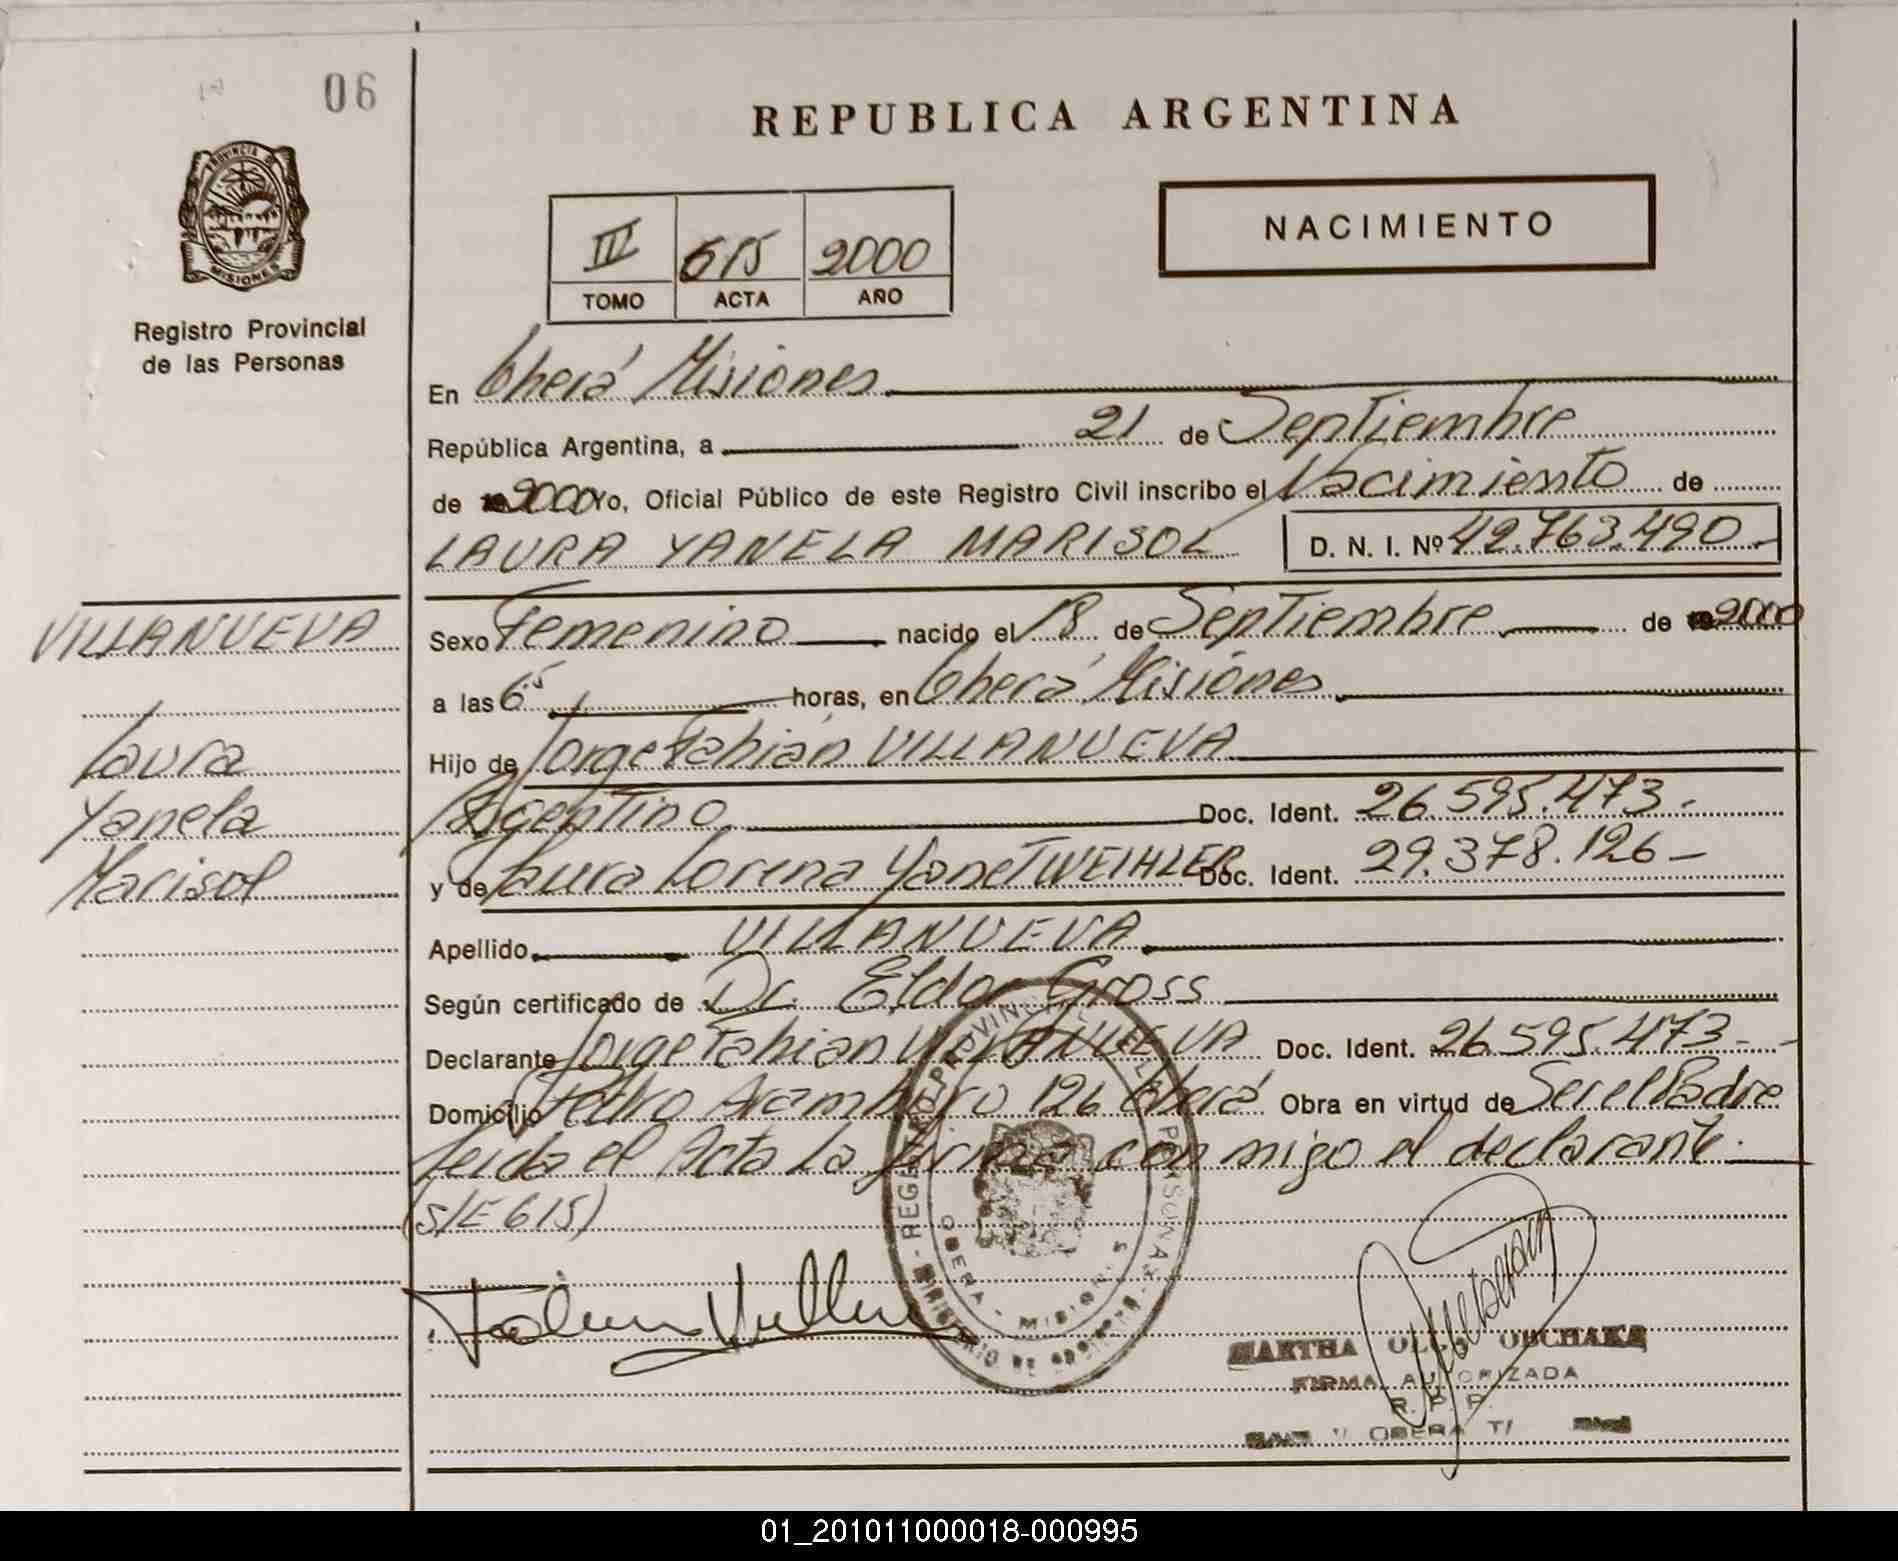 06
PROVINCIA DE
MISIONES
Registro Provincial
de las Personas
REPUBLICA ARGENTINA
NACIMIENTO
III 615 2000
TOMO ACTA AÑO
En Oberá Misiones
República Argentina, a 21 de Septiembre
de 2000 Yo, Oficial Público de este Registro Civil inscribo el Nacimiento de
LAURA YANELA MARISOL D. N. I. Nº 42.763.490.-
VILLANUEVA
Sexo Femenino nacido el 18 de Septiembre de 2000
a las 6 15 horas, en Oberá Misiones
Laura
Hijo de Jorge Fabián VILLANUEVA
Yanela
Argentino Doc. Ident. 26.595.473.
Marisol
y de Laura Lorena Yanet WEIHLER Doc. Ident. 29.378.126-
Apellido VILLANUEVA
Según certificado de Dr. Eldor Gross
Declarante Jorge Fabian VILLANUEVA Doc. Ident. 26.595.473-
Domicilio Pedro Aramburo 126 Oberá Obra en virtud de Ser el Padre
Leida el Acta La firma con migo el declarante.
(S/E 615)
REGISTRO PROVINCIAL DE LAS PERSONAS
OBERA - MISIONES
MINISTERIO DE GOBIERNO
MARTHA OLGA OBCHAKA
FIRMA AUTORIZADA
R. P. P.
OBERA
01_201011000018-000995